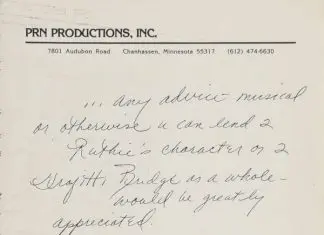 PRN PRODUCTIONS, INC.
7801 Audubon Road Chanhassen, Minnesota 55317 (612) 474-6630
... any advice - musical
or otherwise u can lend 2
Ruthie's character or 2
Graffiti Bridge as a whole -
would be greatly
appreciated.